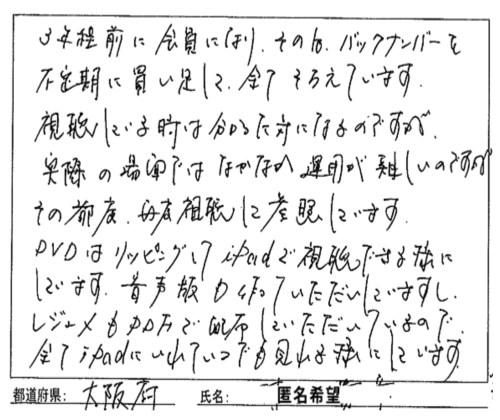 3年程前に会員になり、その後、バックナンバーを
不定期に買い足して、全てそろえています。
視聴している時は分かった気になるのですが、
実際の場面ではなかなか運用が難しいのですが
その都度、再度視聴して参照しています。
DVDはリッピングしてiPadで視聴できる様に
しています。音声版も作っていただいていますし、
レジュメもPDFで配布していただいているので、
全てiPadにいれていつでも見れる様にしています。
都道府県: 大阪府 氏名: 匿名希望